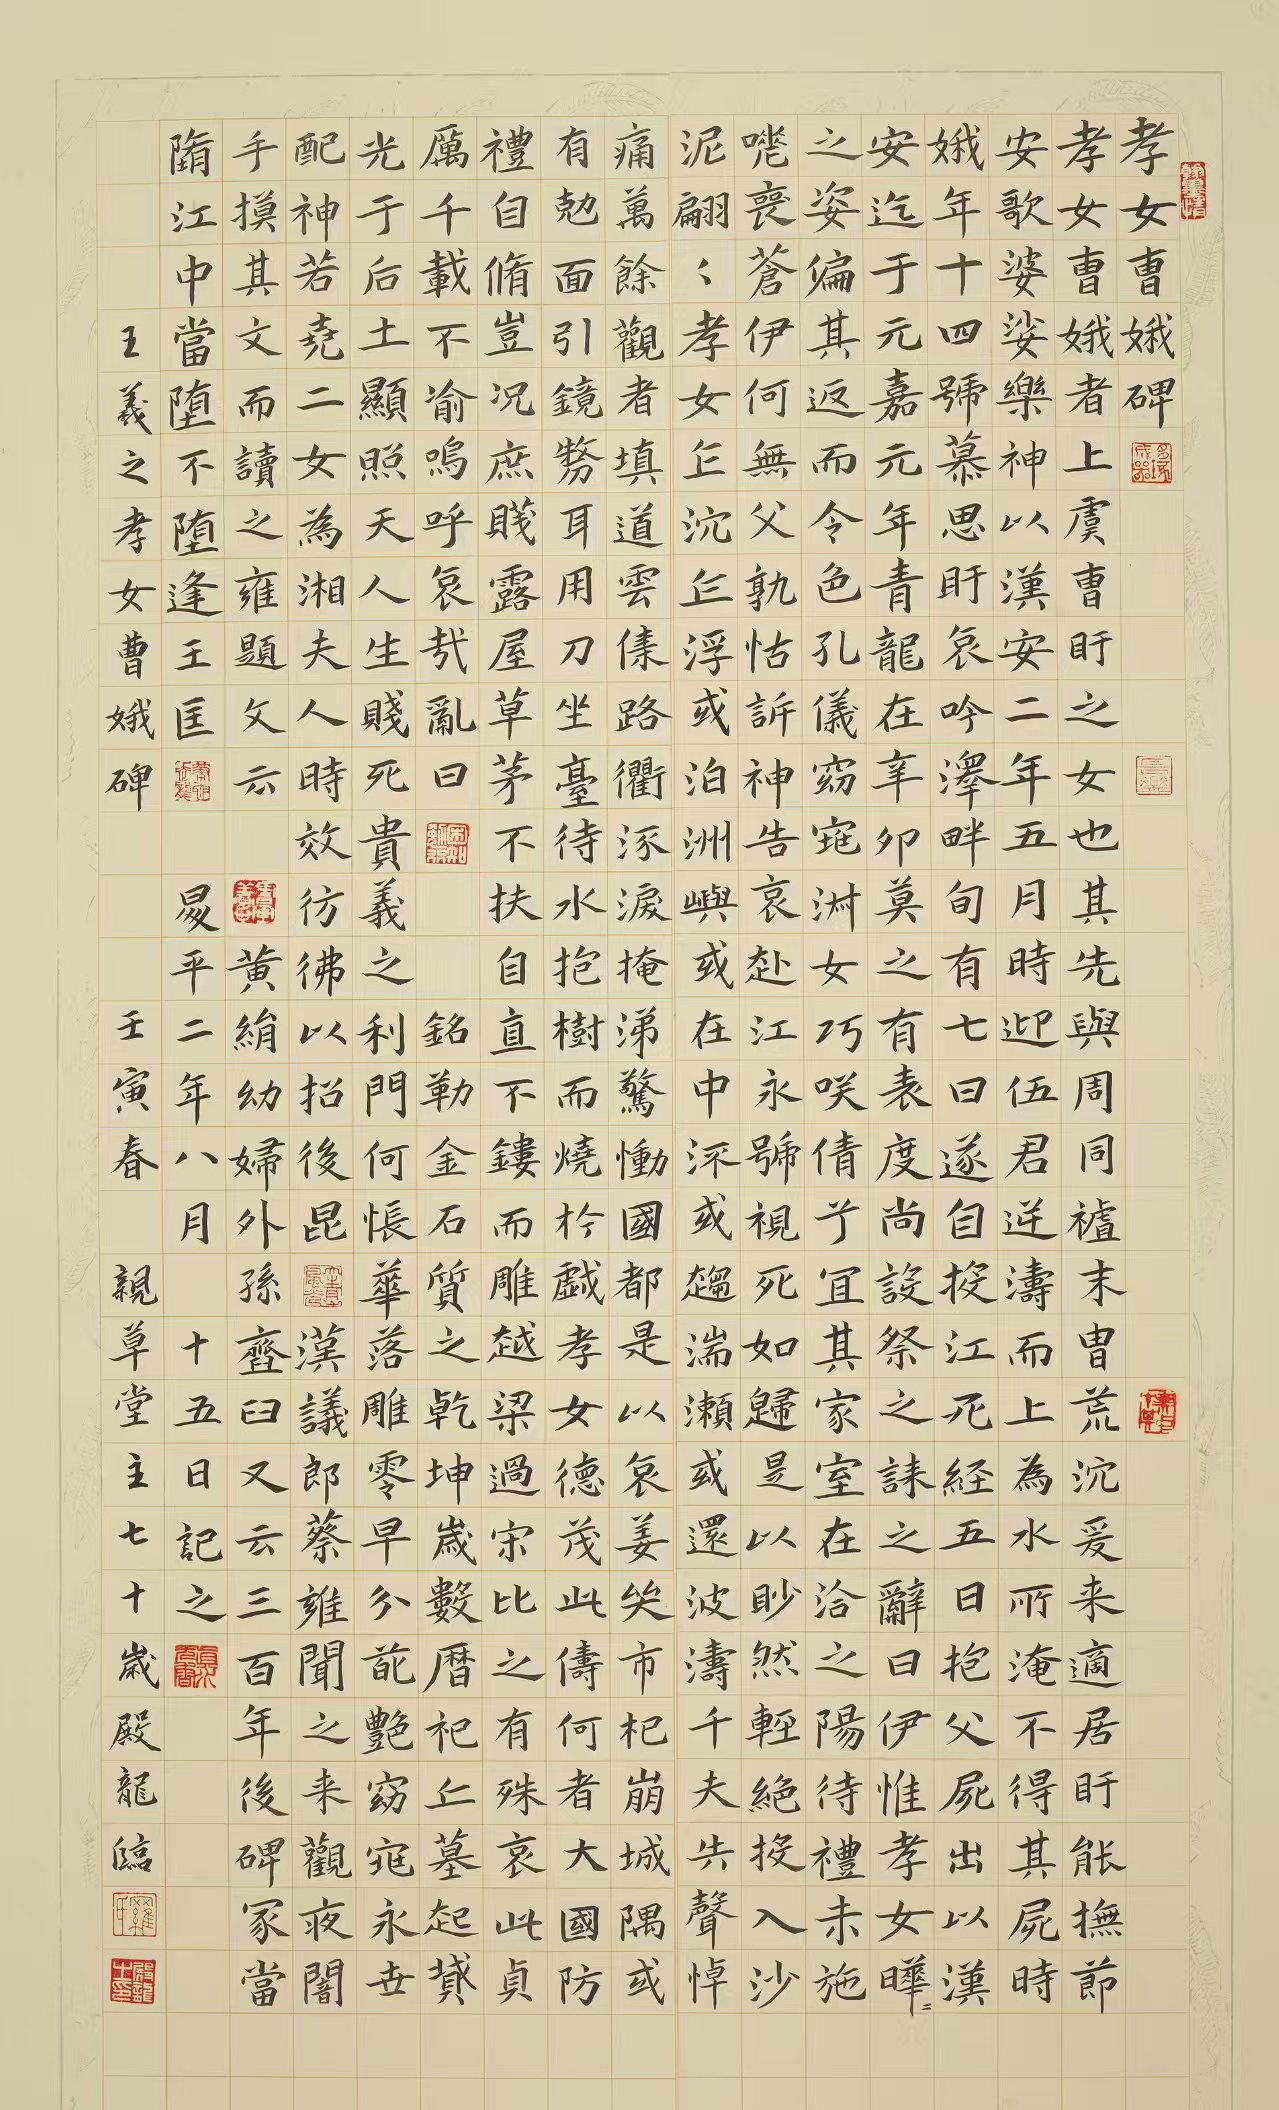 孝女曹娥碑
孝女曹娥者上虞曹盱之女也其先與周同禇末胄荒沉爰来適居盱能撫節
安歌婆娑樂神以漢安二年五月時迎伍君逆濤而上為水所淹不得其屍時
娥年十四號慕思盱哀吟澤畔旬有七日遂自投江死経五日抱父屍出以漢
安迄于元嘉元年青龍在辛卯莫之有表度尚設祭之誄之辭曰伊惟孝女曄〻
之姿偏其返而令色孔儀窈窕淑女巧咲倩兮宜其家室在洽之陽待禮未施
嗟喪蒼伊何無父孰怙訴神告哀赴江永號視死如歸是以眇然輕絕投入沙
泥翩〻孝女乍沉乍浮或泊洲嶼或在中流或趨湍瀬或還波濤千夫失聲悼
痛萬餘觀者填道雲集路衢流淚掩涕驚慟國都是以哀姜哭市杞崩城隅或
有勀面引鏡剺耳用刀坐臺待水抱樹而燒於戯孝女德茂此儔何者大國防
禮自脩豈況庶賤露屋草茅不扶自直不鏤而雕越梁過宋比之有殊哀此貞
厲千載不渝嗚呼哀哉亂曰 銘勒金石質之乾坤歲數曆祀丘墓起墳
光于后土顯照天人生賤死貴義之利門何悵華落雕零早分葩艷窈窕永世
配神若堯二女為湘夫人時效彷彿以招後昆 漢議郎蔡雍聞之来觀夜闇
手摸其文而讀之雍題文云 黃絹幼婦外孫齏臼又云三百年後碑冢當
隋江中當堕不堕逢王匡 昪平二年八月 十五日記之
王羲之孝女曹娥碑 壬寅春 親草堂主七十歲殿龍臨